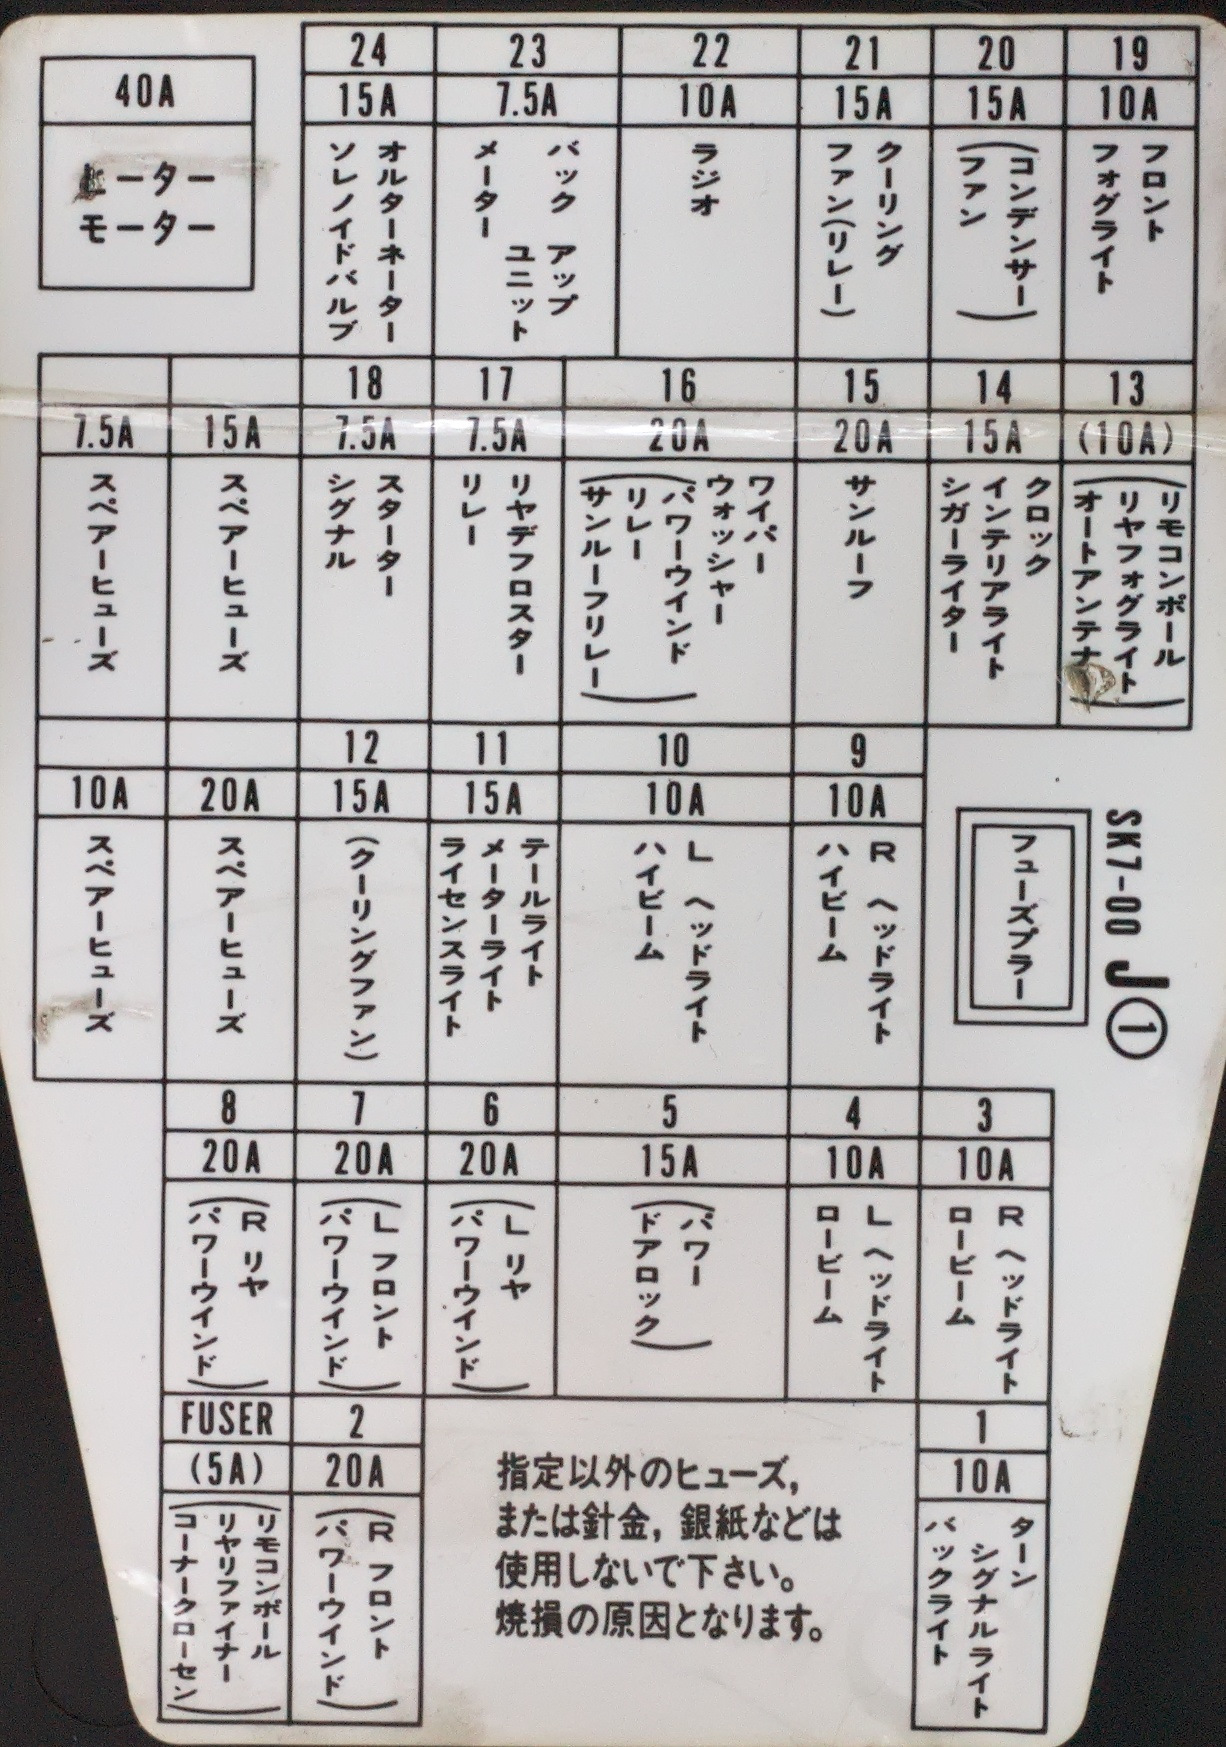 40A
ヒーター
モーター
24
15A
オルターネーター
ソレノイドバルブ
23
7.5A
バック アップ
ユニット
メーター
22
10A
ラジオ
21
15A
クーリング
ファン(リレー)
20
15A
(コンデンサー
ファン)
19
10A
フロント
フォグライト
7.5A
スペアーヒューズ
15A
スペアーヒューズ
18
7.5A
スターター
シグナル
17
7.5A
リヤデフロスター
リレー
16
20A
ワイパー
ウォッシャー
(パワーウインド
リレー
サンルーフリレー)
15
20A
サンルーフ
14
15A
クロック
インテリアライト
シガーライター
13
(10A)
(リモコンポール
リヤフォグライト
オートアンテナ)
10A
スペアーヒューズ
20A
スペアーヒューズ
12
15A
(クーリングファン)
11
15A
テールライト
メーターライト
ライセンスライト
10
10A
L ヘッドライト
ハイビーム
9
10A
R ヘッドライト
ハイビーム
フューズプラー
SK7-00 J①
8
20A
(R リヤ
パワーウインド)
7
20A
(L フロント
パワーウインド)
6
20A
(L リヤ
パワーウインド)
5
15A
(パワー
ドアロック)
4
10A
L ヘッドライト
ロービーム
3
10A
R ヘッドライト
ロービーム
FUSER
(5A)
(リモコンポール
リヤリファイナー
コーナークローセン)
2
20A
(R フロント
パワーウインド)
指定以外のヒューズ,
または針金, 銀紙などは
使用しないで下さい。
焼損の原因となります。
1
10A
ターン
シグナルライト
バックライト